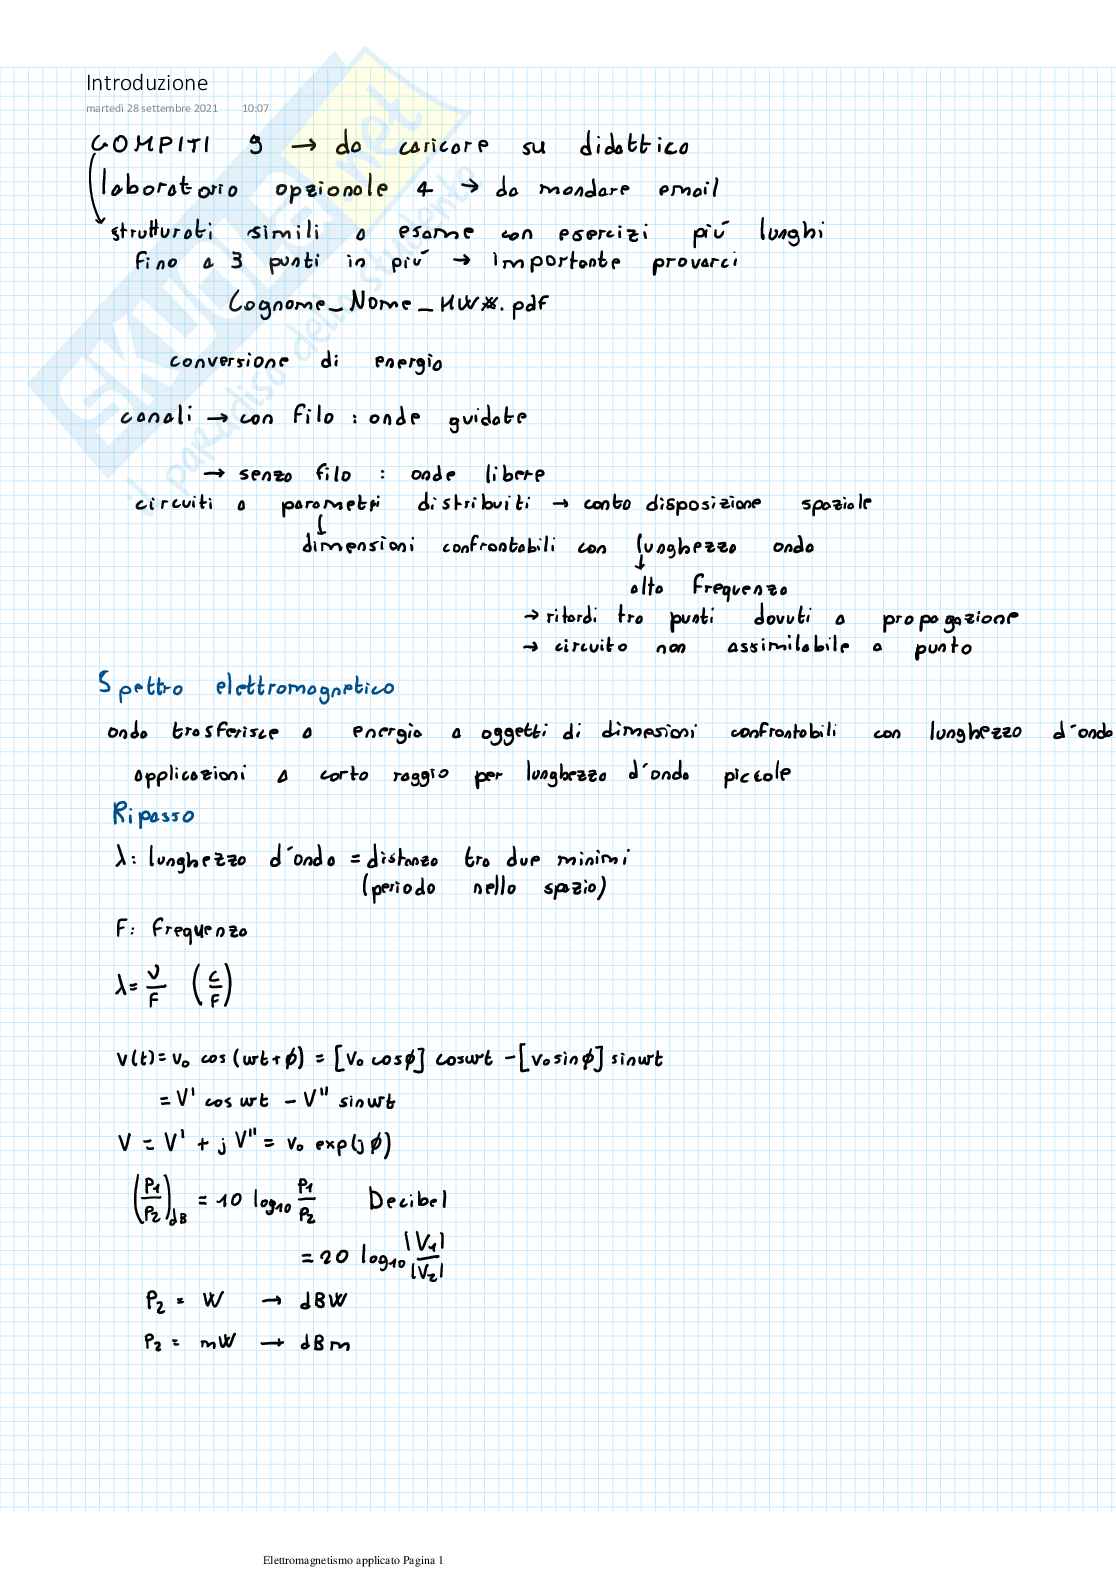 Introduzione
martedì 28 settembre 2021 10:07
COMPITI 9 → da caricare su didattica
laboratorio opzionale 4 → da mandare email
strutturati simili a esame con esercizi più lunghi
fino a 3 punti in più → importante provarci
Cognome_Nome_HW#.pdf
conversione di energia
canali → con filo : onde guidate
→ senza filo : onde libere
circuiti a parametri distribuiti → conta disposizione spaziale
↓
dimensioni confrontabili con lunghezza onda
↓
alta frequenza
→ ritardi tra punti dovuti a propagazione
→ circuito non assimilabile a punto
Spettro elettromagnetico
onda trasferisce a energia a oggetti di dimesioni confrontabili con lunghezza d'onda
applicazioni a corto raggio per lunghezza d'onda piccole
Ripasso
λ: lunghezza d'onda = distanza tra due minimi
(periodo nello spazio)
F: frequenza
λ = v/F (c/F)
v(t) = v₀ cos(ωt+ϕ) = [v₀ cosϕ] cosωt - [v₀ sinϕ] sinωt
= V' cos ωt - V'' sinωt
V = V' + j V'' = v₀ exp(jϕ)
(P₁/P₂)dB = 10 log₁₀ P₁/P₂ Decibel
= 20 log₁₀ |V₁|/|V₂|
P₂ = W → dBW
P₂ = mW → dBm
Elettromagnetismo applicato Pagina 1